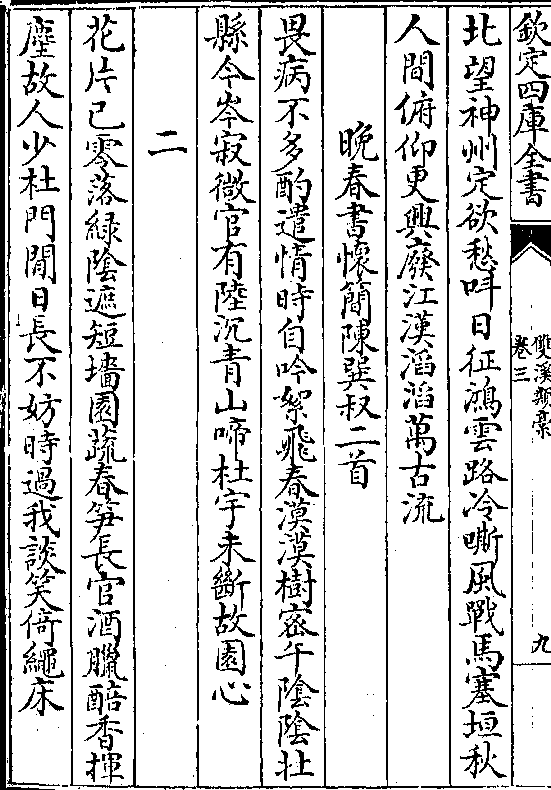 欽定四庫全書
雙溪類稾
卷三
九
北望神州定欲愁呌日征鴻雲路冷嘶風戰馬塞垣秋
人間俯仰更興廢江漢滔滔萬古流
晚春書懷簡陳巽叔二首
畏病不多酌遣情時自吟絮飛春漠漠樹宻午隂隂壯
縣今岑寂微官有陸沉青山啼杜宇未斷故園心
二
花片已零落緑隂遮短墻園蔬春笋長官酒臘醅香揮
麈故人少杜門閒日長不妨時過我談笑倚繩床